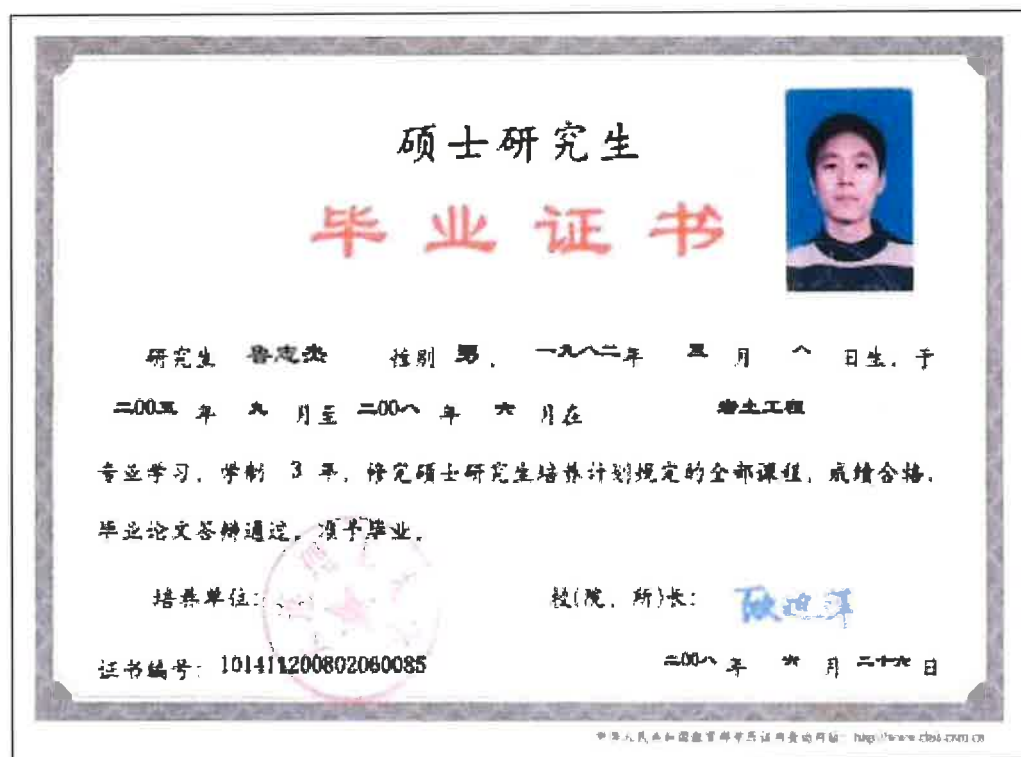 硕士研究生
毕业证书
研究生 鲁志杰 性别 男，一九八二年 五 月 八 日生，于
二00五 年 九 月至 二00八 年 六 月在 岩土工程
专业学习，学制 3 年，修完硕士研究生培养计划规定的全部课程，成绩合格，
毕业论文答辩通过，准予毕业。
培养单位： 校(院、所)长：
证书编号：101411200802060085 二00八 年 六 月 二十六 日
中华人民共和国教育部学历证书查询网址：http://www.chsi.com.cn